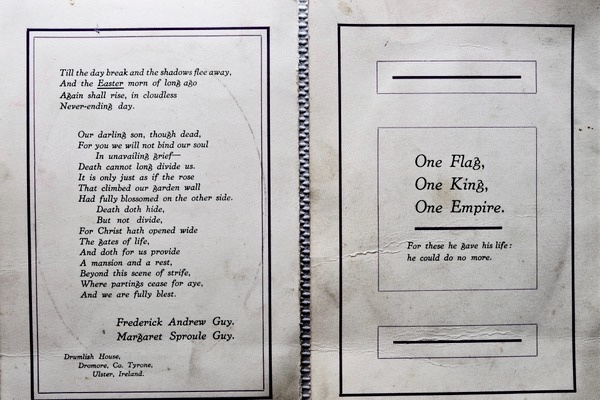 Till the day break and the shadows flee away,
And the Easter morn of long ago
Again shall rise, in cloudless
Never-ending day.
Our darling son, though dead,
For you we will not bind our soul
In unavailing grief—
Death cannot long divide us.
It is only just as if the rose
That climbed our garden wall
Had fully blossomed on the other side.
Death doth hide,
But not divide,
For Christ hath opened wide
The gates of life,
And doth for us provide
A mansion and a rest,
Beyond this scene of strife,
Where partings cease for aye,
And we are fully blest.
Frederick Andrew Guy.
Margaret Sproule Guy.
Drumlish House,
Dromore, Co. Tyrone,
Ulster, Ireland.
One Flag,
One King,
One Empire.
For these he gave his life:
he could do no more.